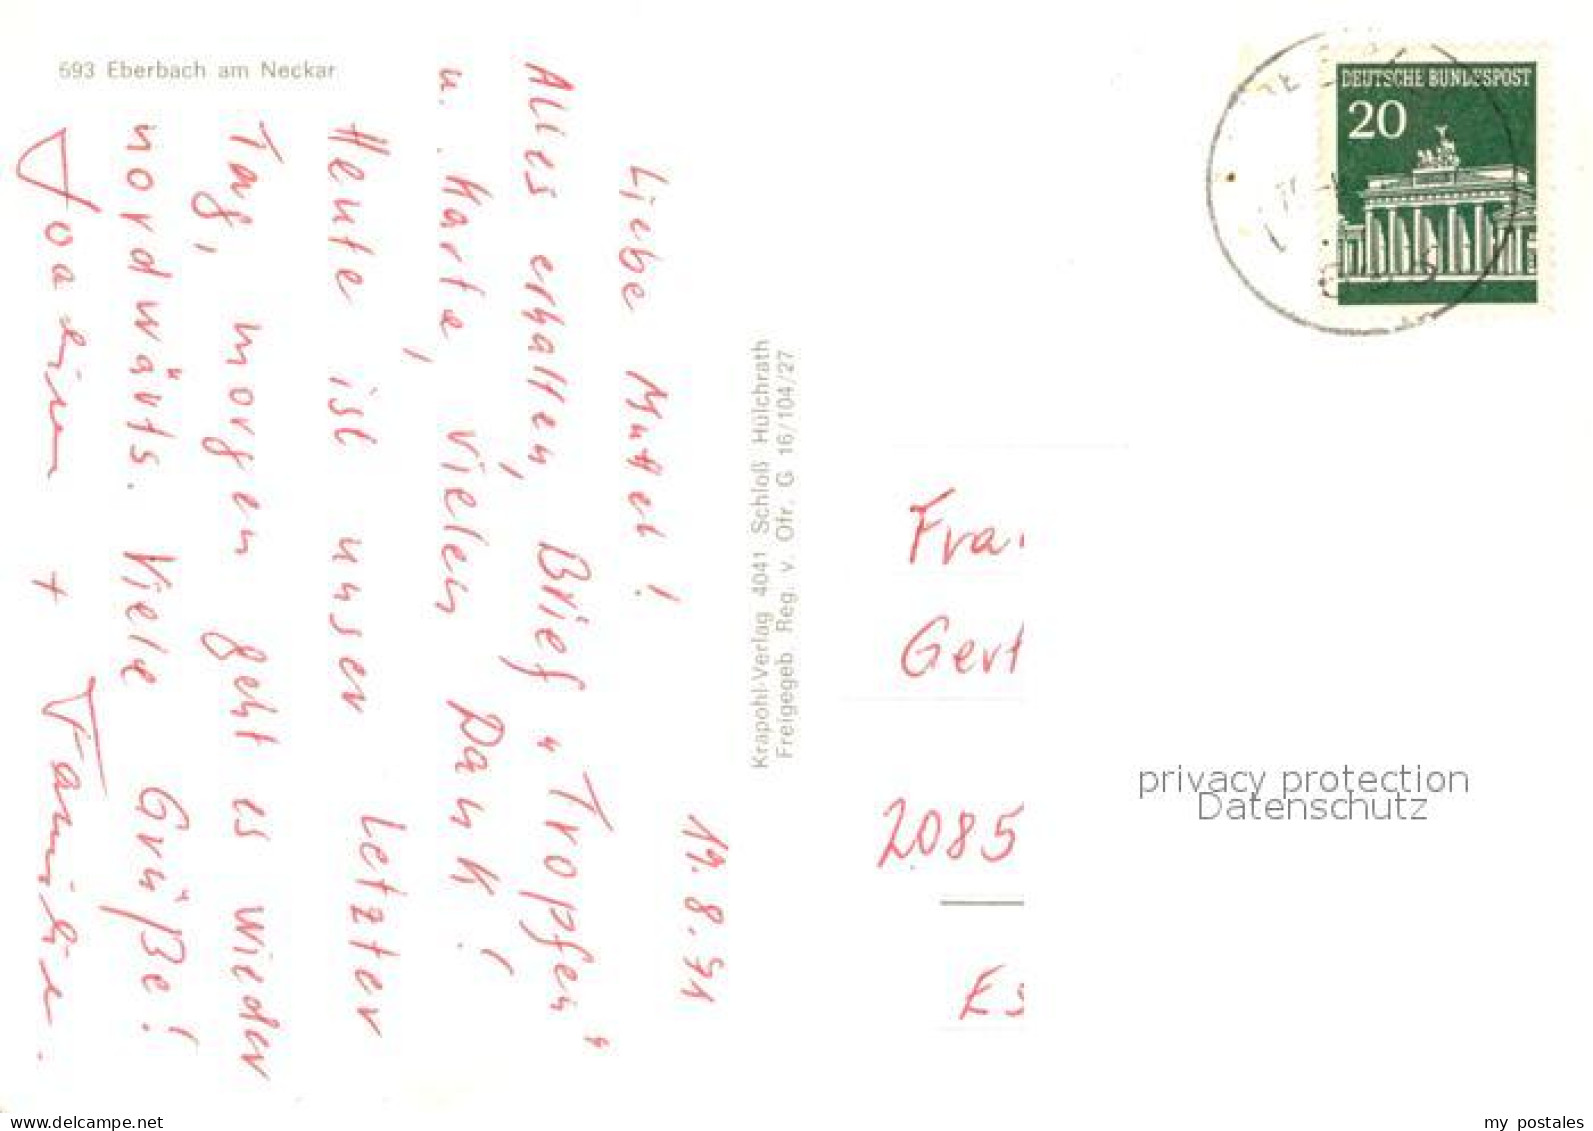 593 Eberbach am Neckar
19.8.71
Liebe Muttel!
Alles erhalten, Brief „Tropfen"
u. Karte, vielen Dank!
Heute ist unser letzter
Tag, morgen geht es wieder
nordwärts. Viele Grüße!
+ Familie.
Krapohl-Verlag 4041 Schloß Hülchrath
Freigegeb. Reg. v. Ofr. G 16/104/27
DEUTSCHE BUNDESPOST
20
Fra
Gert
2085
Es
privacy protection
Datenschutz
my postales